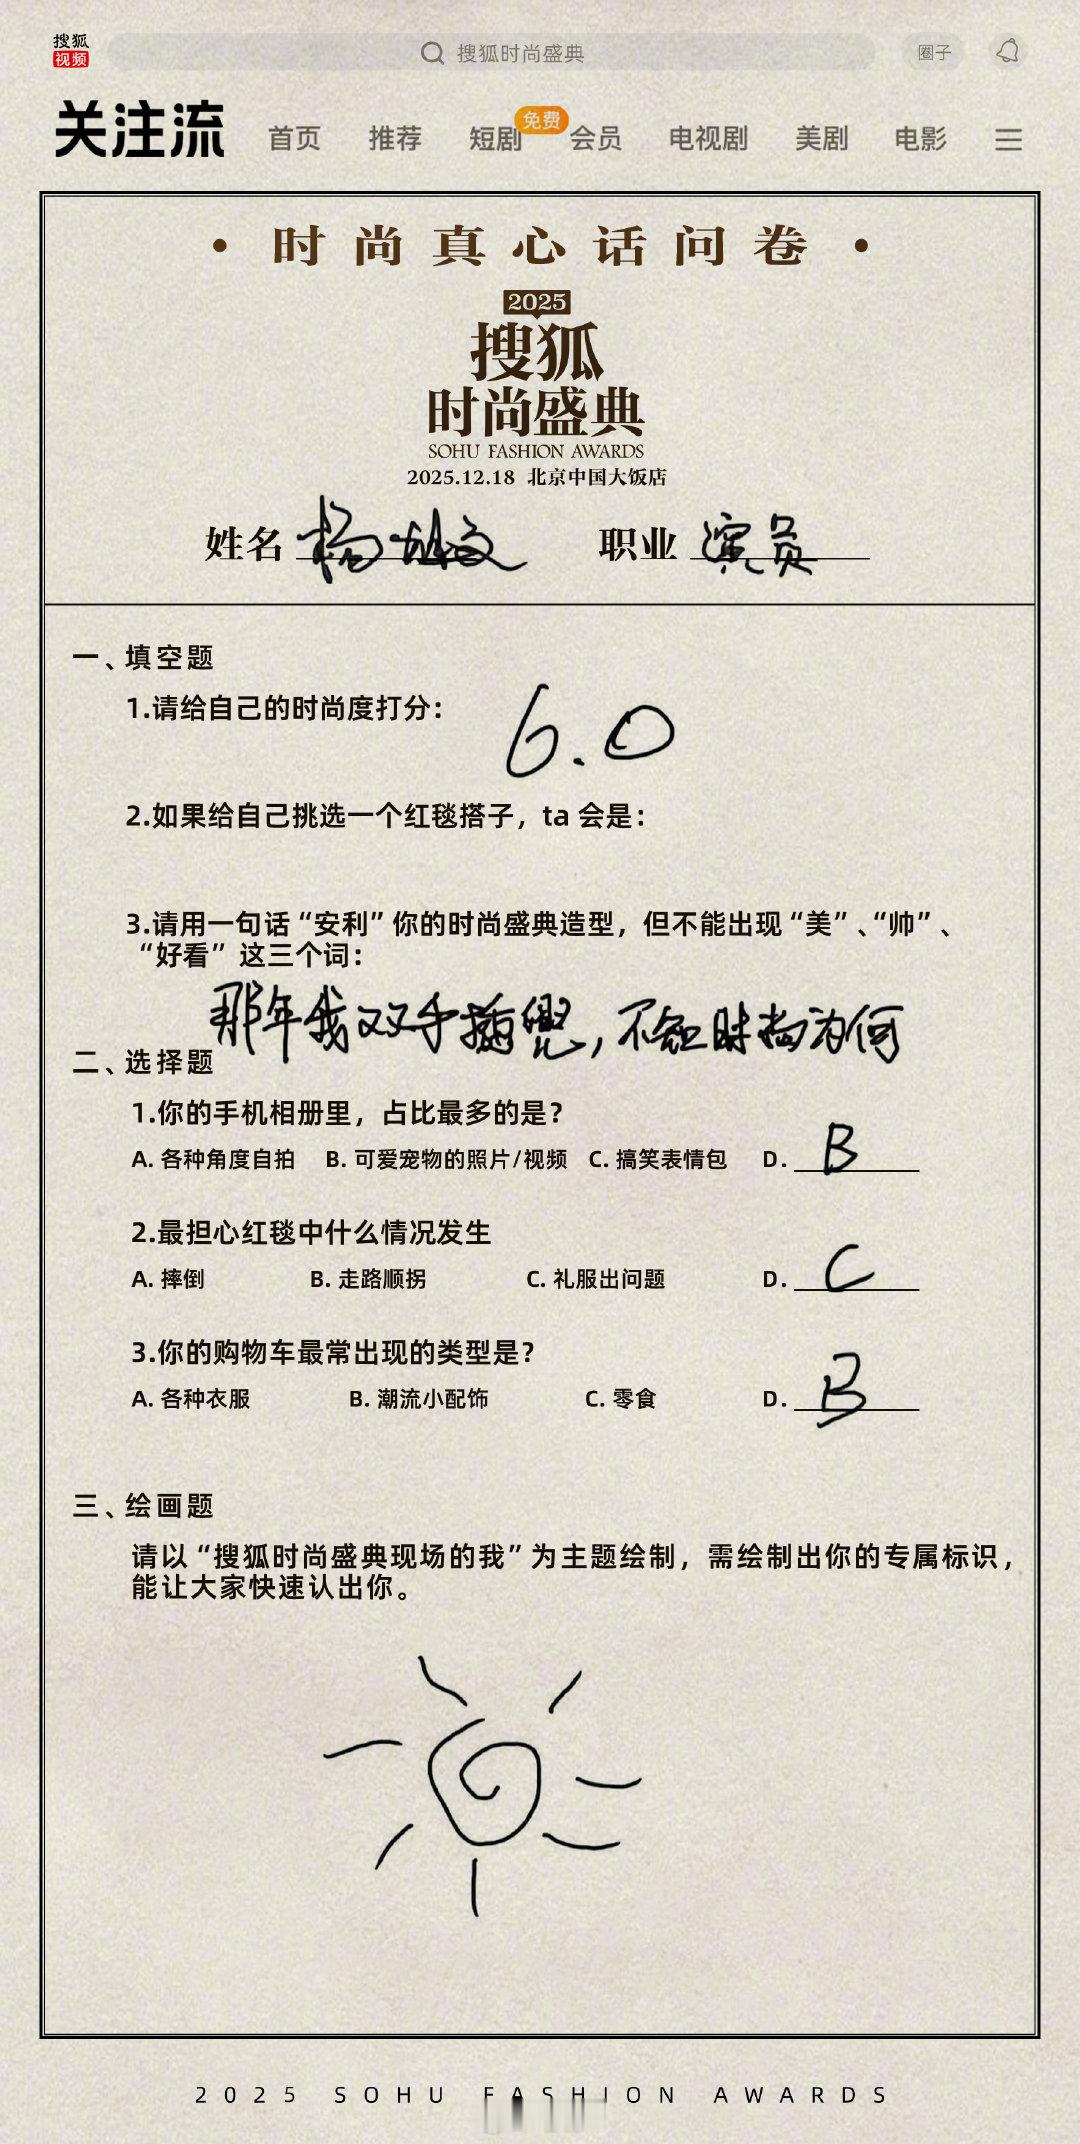 搜狐
视频
搜狐时尚盛典
圈子
关注流 首页 推荐 短剧 免费 会员 电视剧 美剧 电影
· 时尚真心话问卷 ·
2025
搜狐
时尚盛典
SOHU FASHION AWARDS
2025.12.18 北京中国大饭店
姓名 杨 文 职业 演员
一、填空题
1.请给自己的时尚度打分： 6.0
2.如果给自己挑选一个红毯搭子，ta 会是：
3.请用一句话“安利”你的时尚盛典造型，但不能出现“美”、“帅”、
“好看” 这三个词：
那年我双手插兜，不知时尚为何
二、选择题
1.你的手机相册里，占比最多的是？
A. 各种角度自拍 B. 可爱宠物的照片/视频 C. 搞笑表情包 D. B
2.最担心红毯中什么情况发生
A. 摔倒 B. 走路顺拐 C. 礼服出问题 D. C
3.你的购物车最常出现的类型是？
A. 各种衣服 B. 潮流小配饰 C. 零食 D. B
三、绘画题
请以“搜狐时尚盛典现场的我”为主题绘制，需绘制出你的专属标识，
能让大家快速认出你。
2025 SOHU FASHION AWARDS